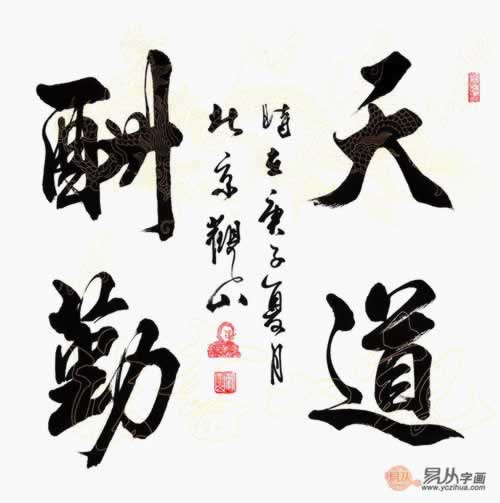 天道
酬勤
時在庚子夏月
北京觀山
易从字画
www.yczihua.com